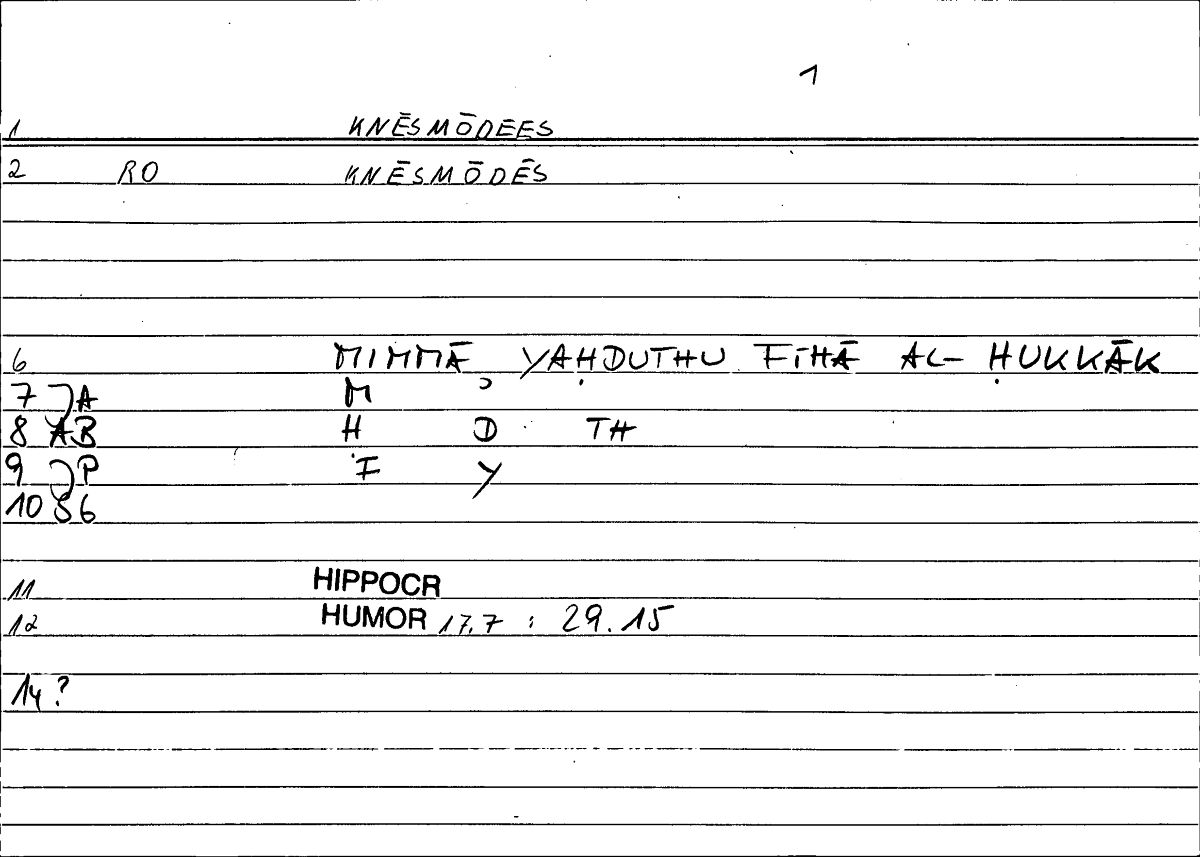 1
1 KNĒSMŌDEES
2 RO KNĒSMŌDĒS
6 MIMMĀ YAḤDUTHU FĪHĀ AL- ḤUKKĀK
7 A M
8 AB Ḥ D TH
9 P F Y
10 S6
11 HIPPOCR
12 HUMOR 17.7 : 29.15
14 ?